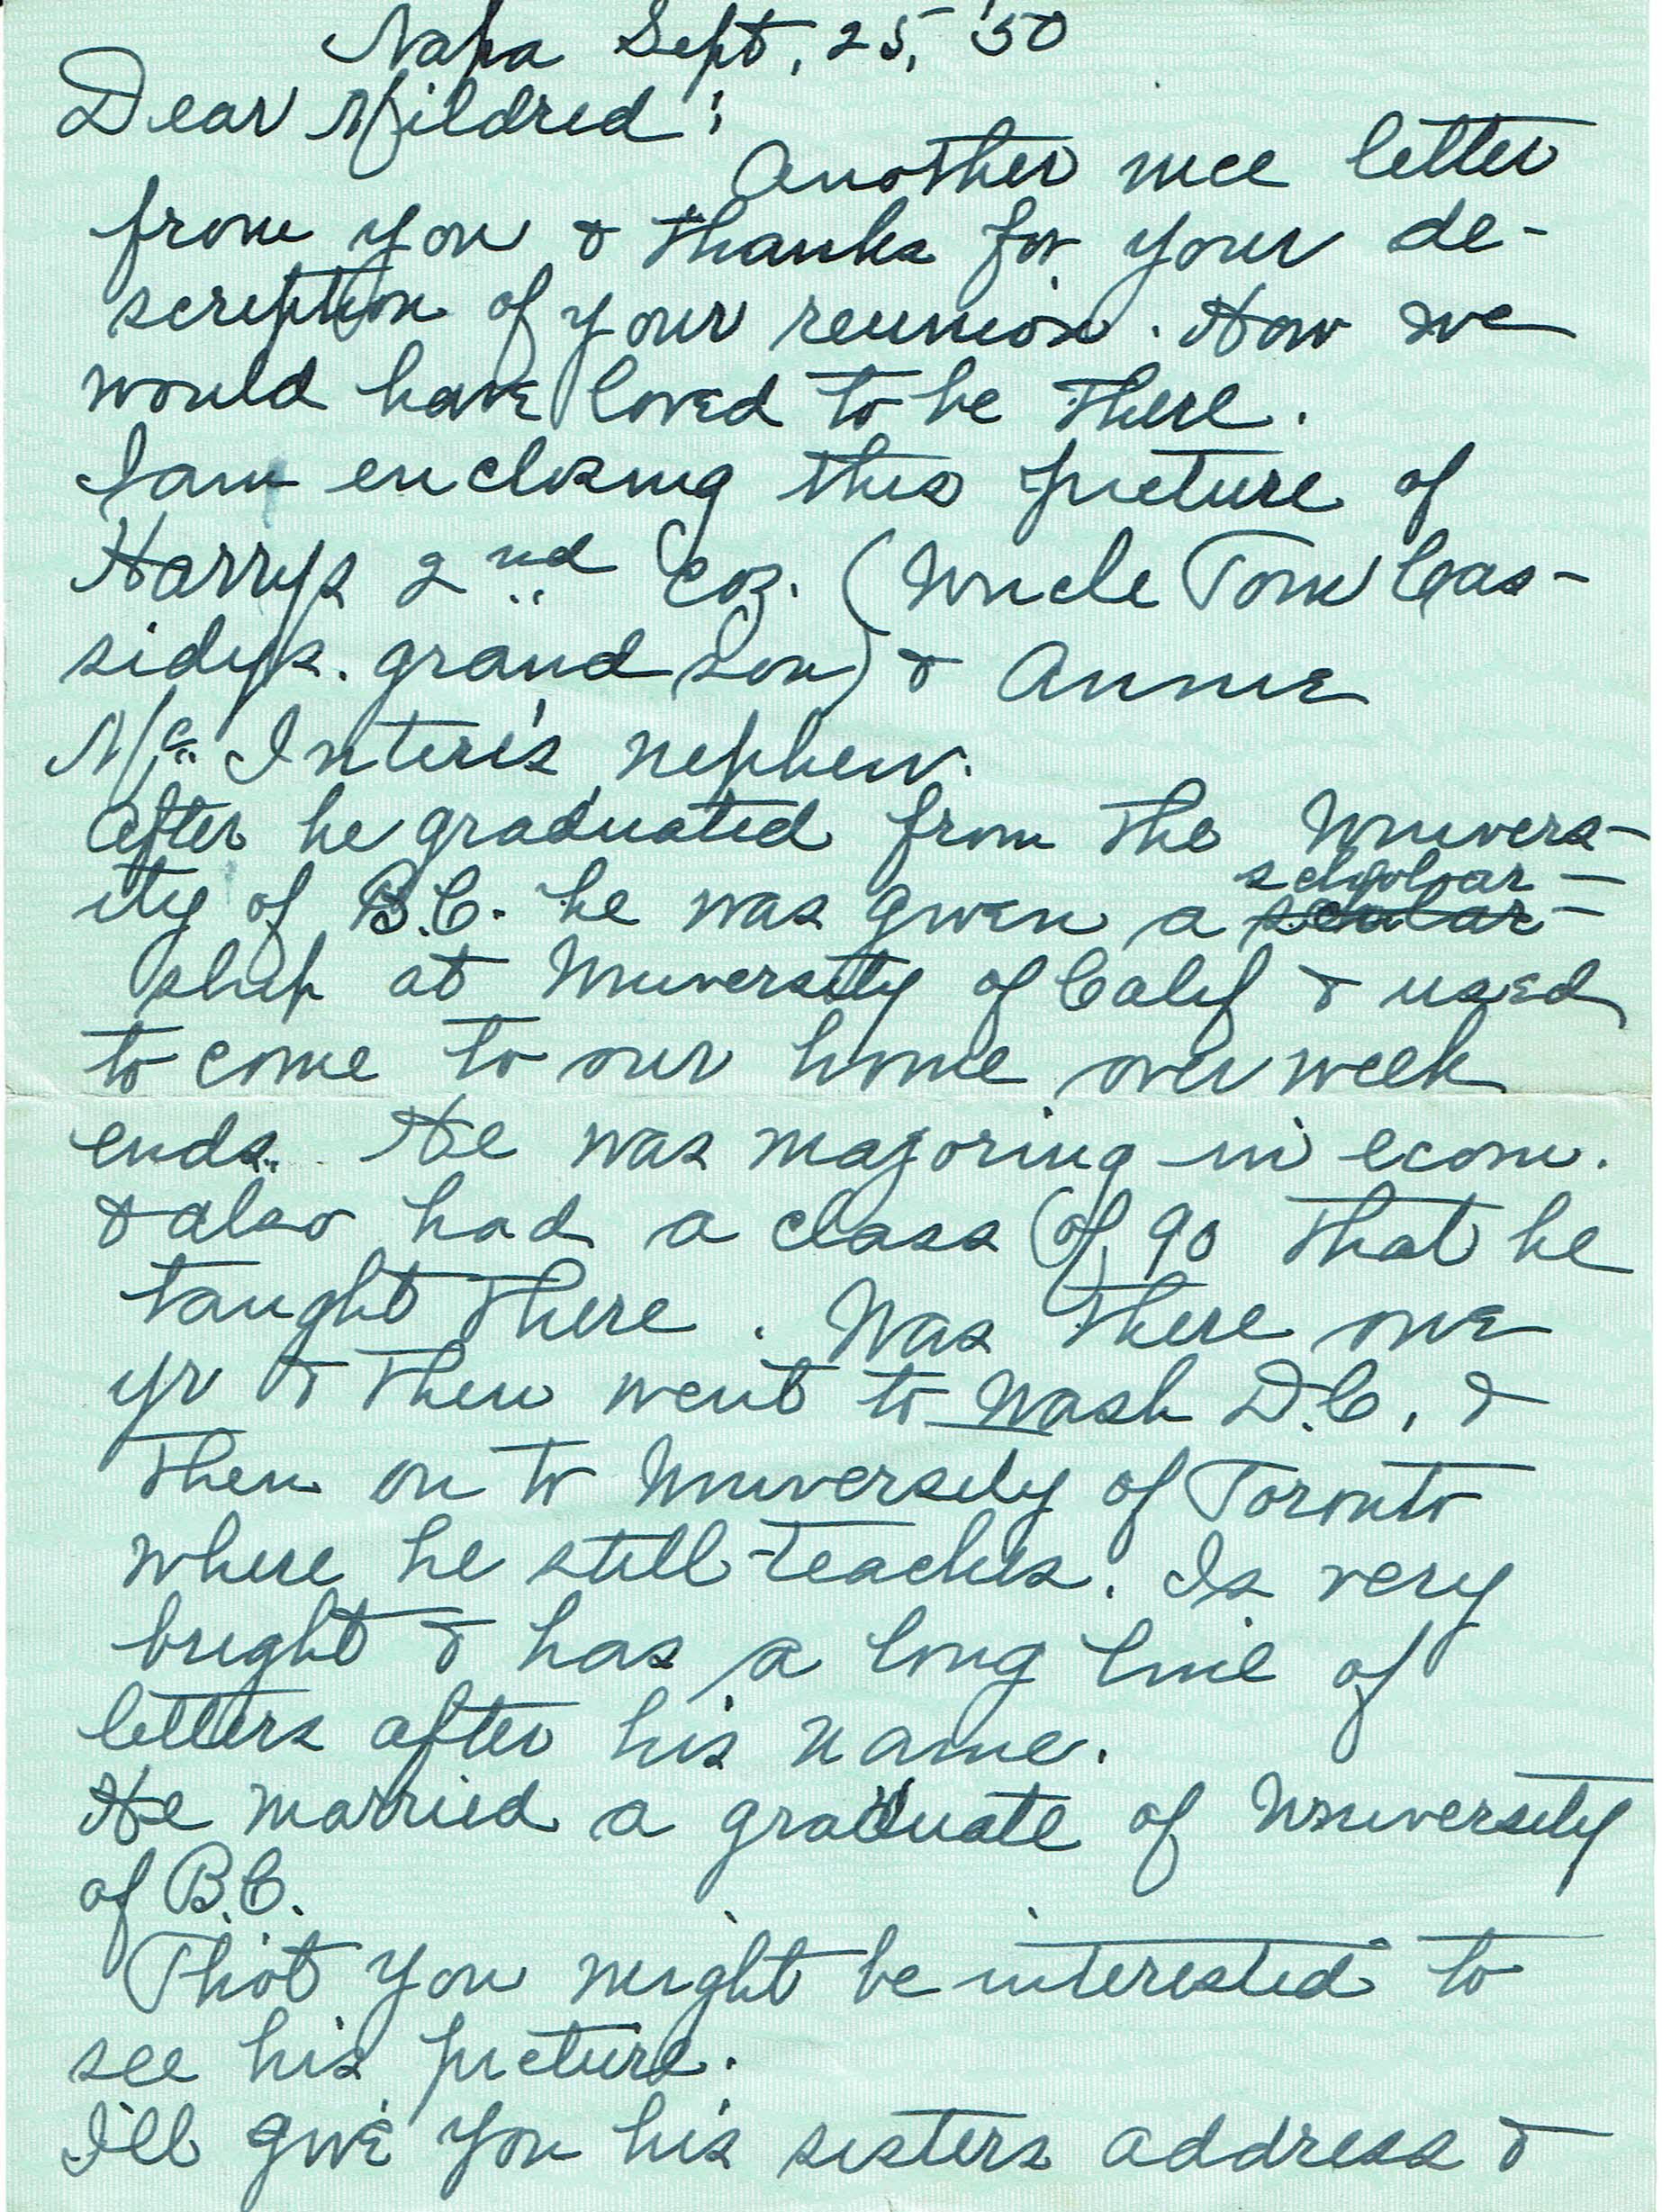 Napa Sept, 25, '50
Dear Mildred:
Another nice letter
from you & thanks for your de-
scription of your reunion. How we
would have loved to be there.
I am enclosing this picture of
Harrys 2nd coz. (Uncle Tom Cas-
sidys. grand son) & Annie
Mc Interis nephew.
After he graduated from the Univers-
ity of B.C. he was given a scholoar-
ship at University of Calif & used
to come to our home over week
ends. He was majoring in econ.
& also had a class of 90 that he
taught there. Was there one
yr & then went to Wash D.C, &
then on to University of Toronto
where he still teaches. Is very
bright & has a long line of
letters after his name.
He married a graduate of University
of B.C.
Thot you might be interested to
see his picture.
I'll give you his sisters address &